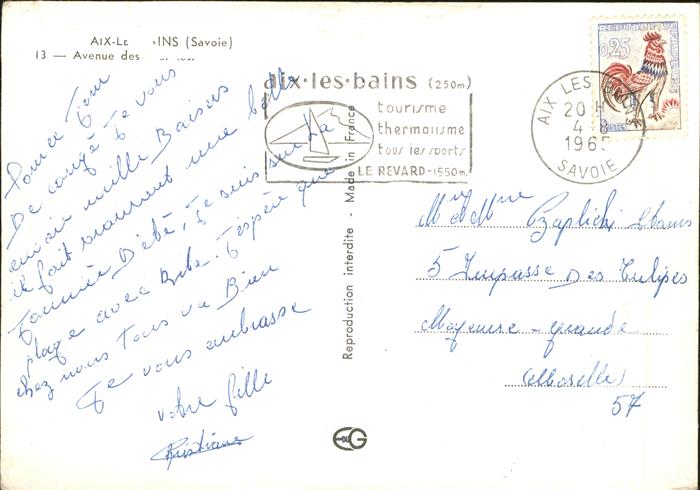 AIX-LE INS (Savoie)
13 — Avenue des
Pour ce Jour
De congé Je vous
envoie mille Baisers
il fait vraiment une belle
Journée Je suis sur la
plage avec J'espère que
chez nous Tous va Bien
Je vous embrasse
votre fille
Christiane
aix·les·bains (250m)
tourisme
thermalisme
tous les sports
LE REVARD-1550m.
Reproduction interdite - Made in France
EG
REPUBLIQUE FRANCAISE
0,25
POSTES
AIX LES BAINS
20 H
4-8
1965
SAVOIE
Mr et Mme
5 Impasse Des Tulipes
Moyeuvre-Grande
(Moselle)
57